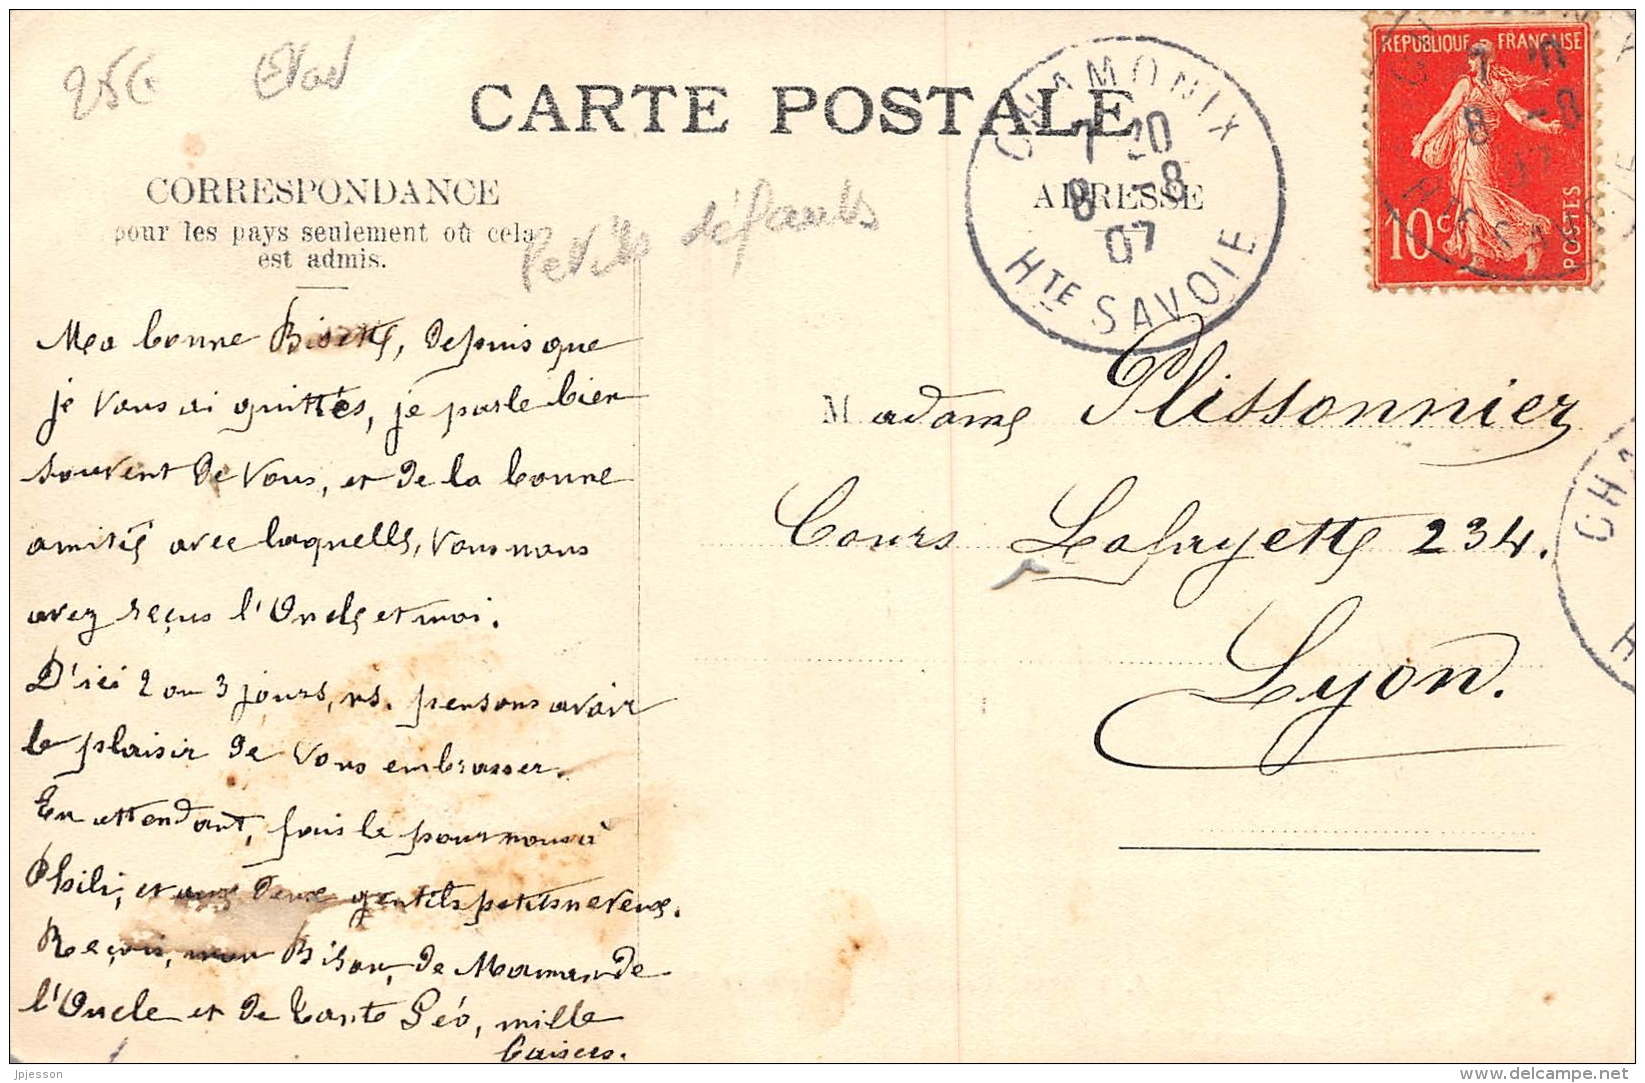 25€
CARTE POSTALE
CORRESPONDANCE
pour les pays seulement où cela
est admis.
Petits défauts
ADRESSE
CHAMONIX
7 20
8 -8
07
HTE SAVOIE
REPUBLIQUE FRANÇAISE
10c
POSTES
Ma bonne Bisette, depuis que
je vous ai quittés, je parle bien
souvent de vous, et de la bonne
amitié avec laquelle, vous nous
avez reçus l'Oncle et moi.
D'ici 2 ou 3 jours, ns. pensons avoir
le plaisir de vous embrasser.
En attendant, fais le pour nous à
Phili, et aux deux gentils petits neveux.
Reçois, mon Bison, de Maman de
l'Oncle et de Tante Géo, mille
baisers.
Madame Plissonnier
Cours Lafayette 234.
Lyon.
CHA
H
jpjesson
www.delcampe.net